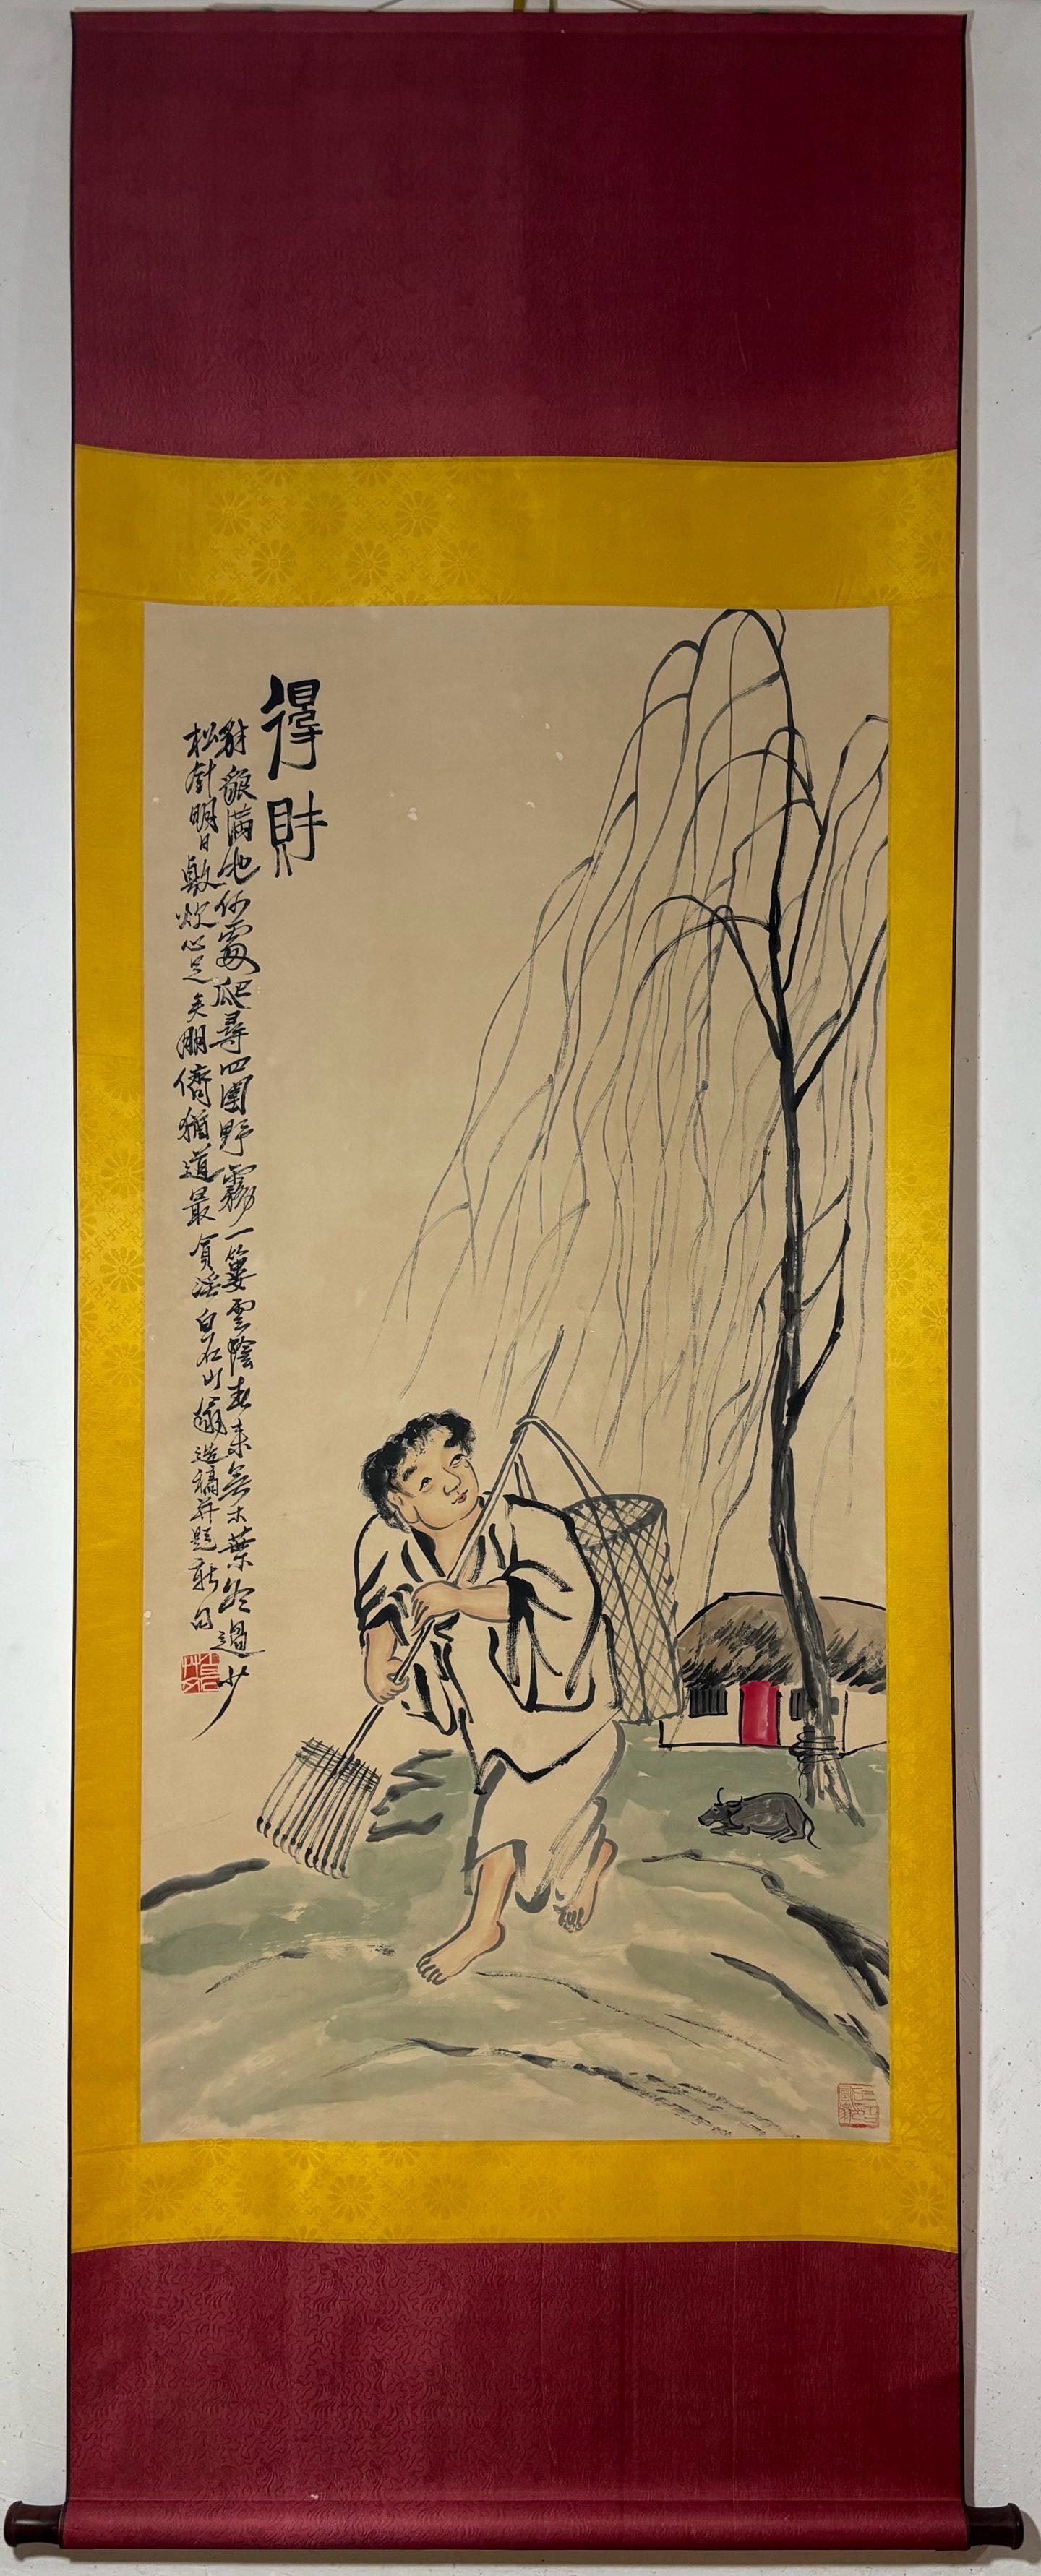 得財
豺狼滿地何處爬尋四圍野霧一簍雲陰春來無木葉冬過少
松針明日敷炊心足矣朋儕猶道最貪淫白石山翁造稿并題新句